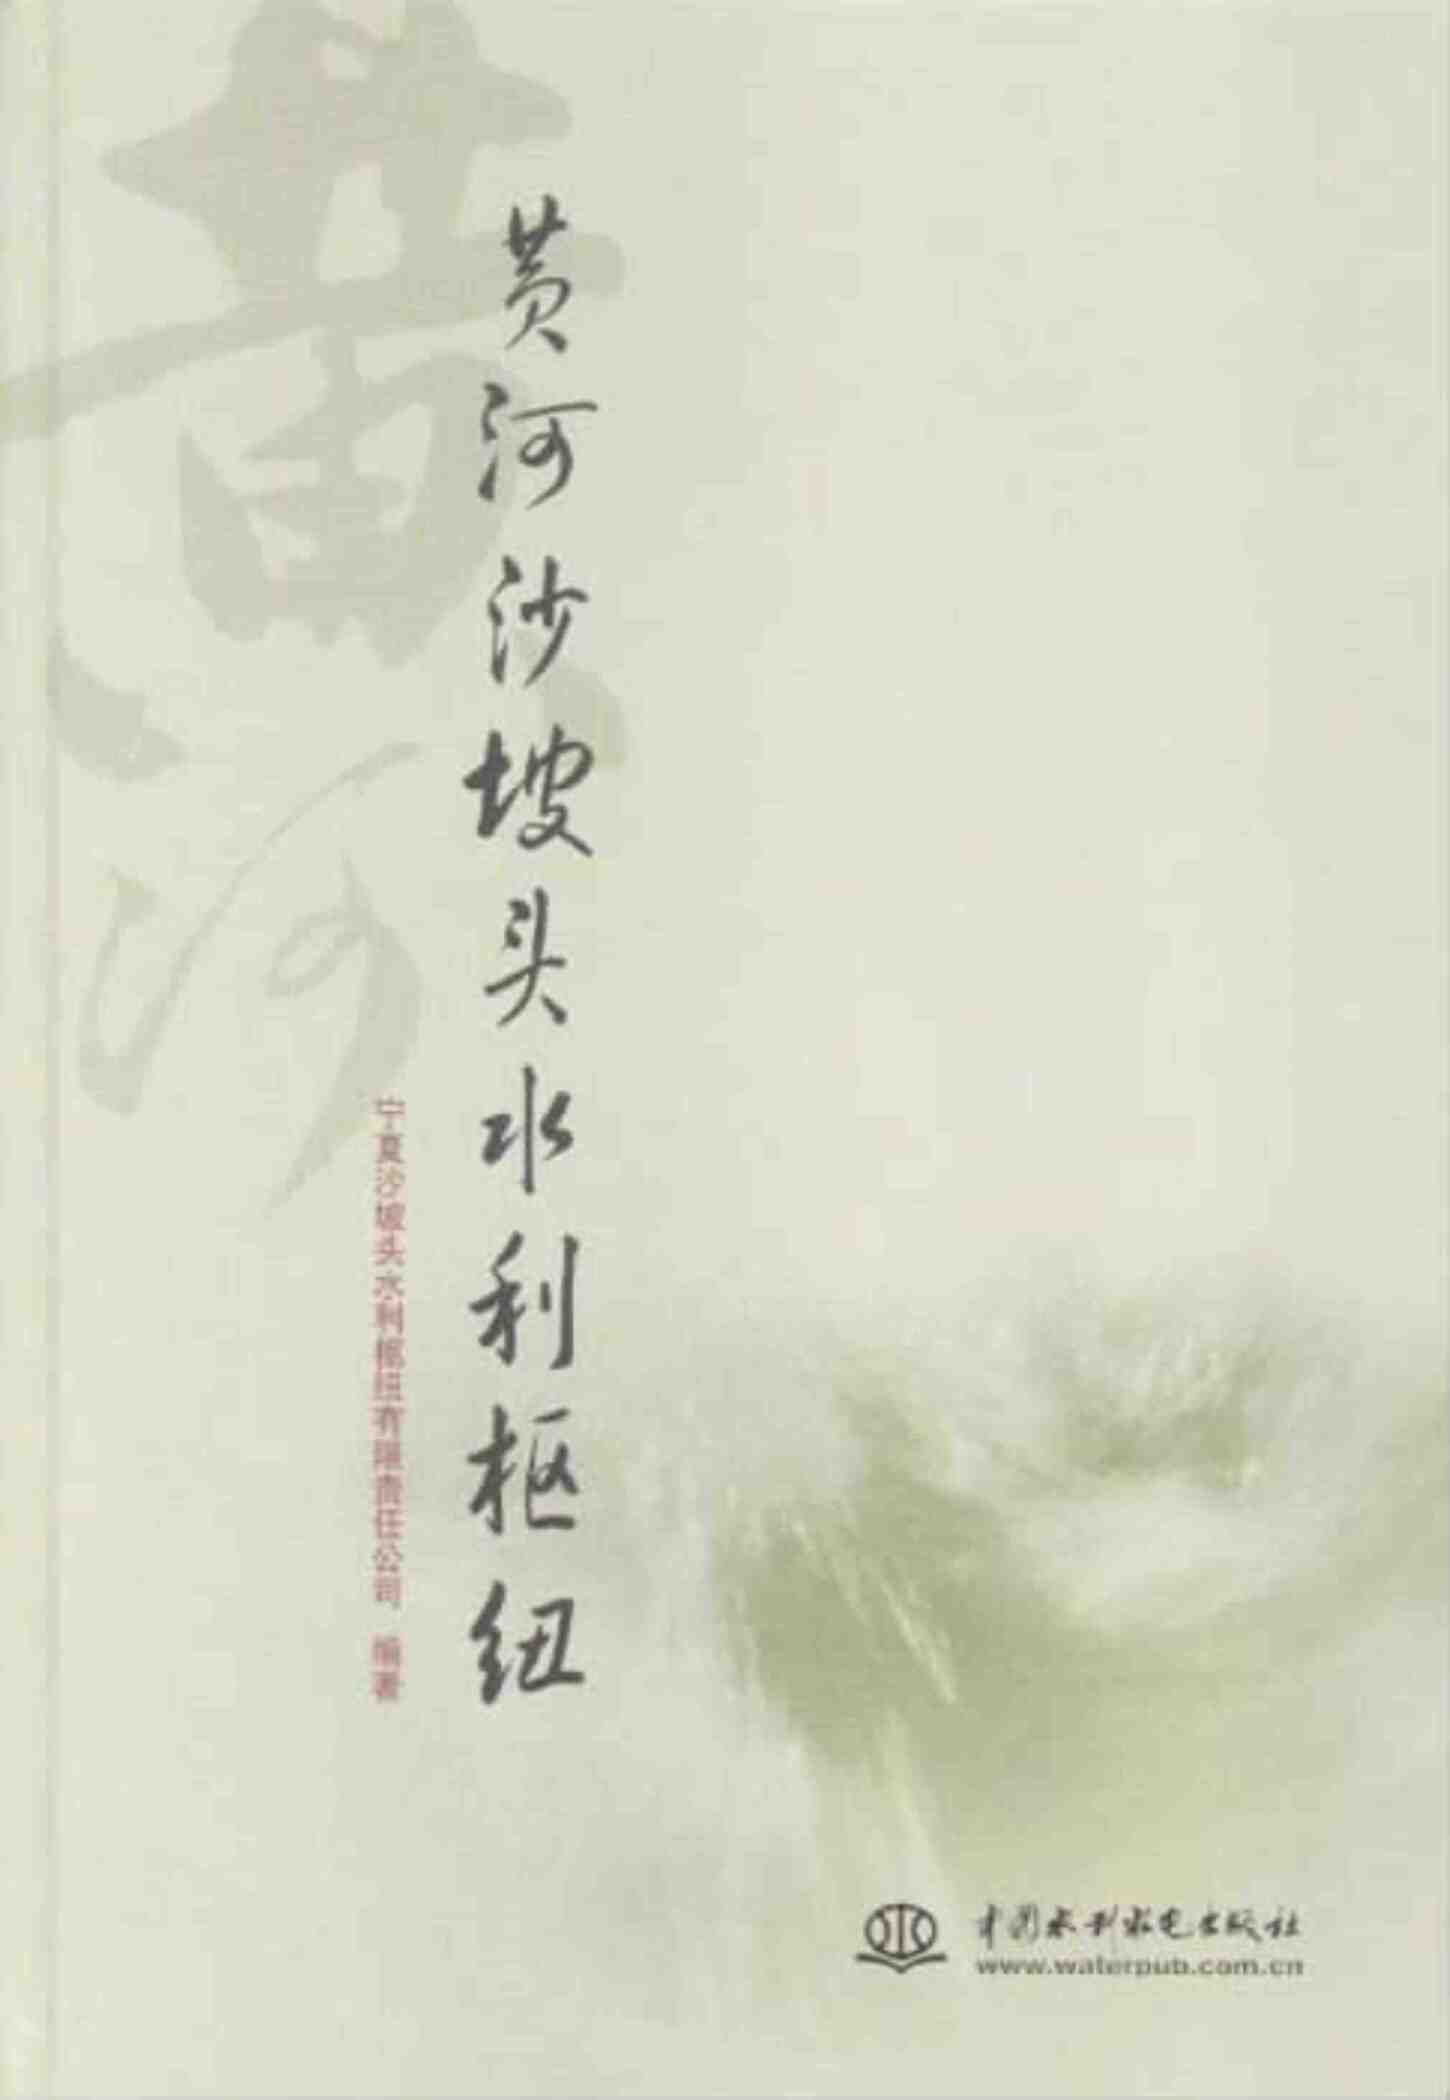 黄河
黄河沙坡头水利枢纽
宁夏沙坡头水利枢纽有限责任公司 编著
中国水利水电出版社
www.waterpub.com.cn